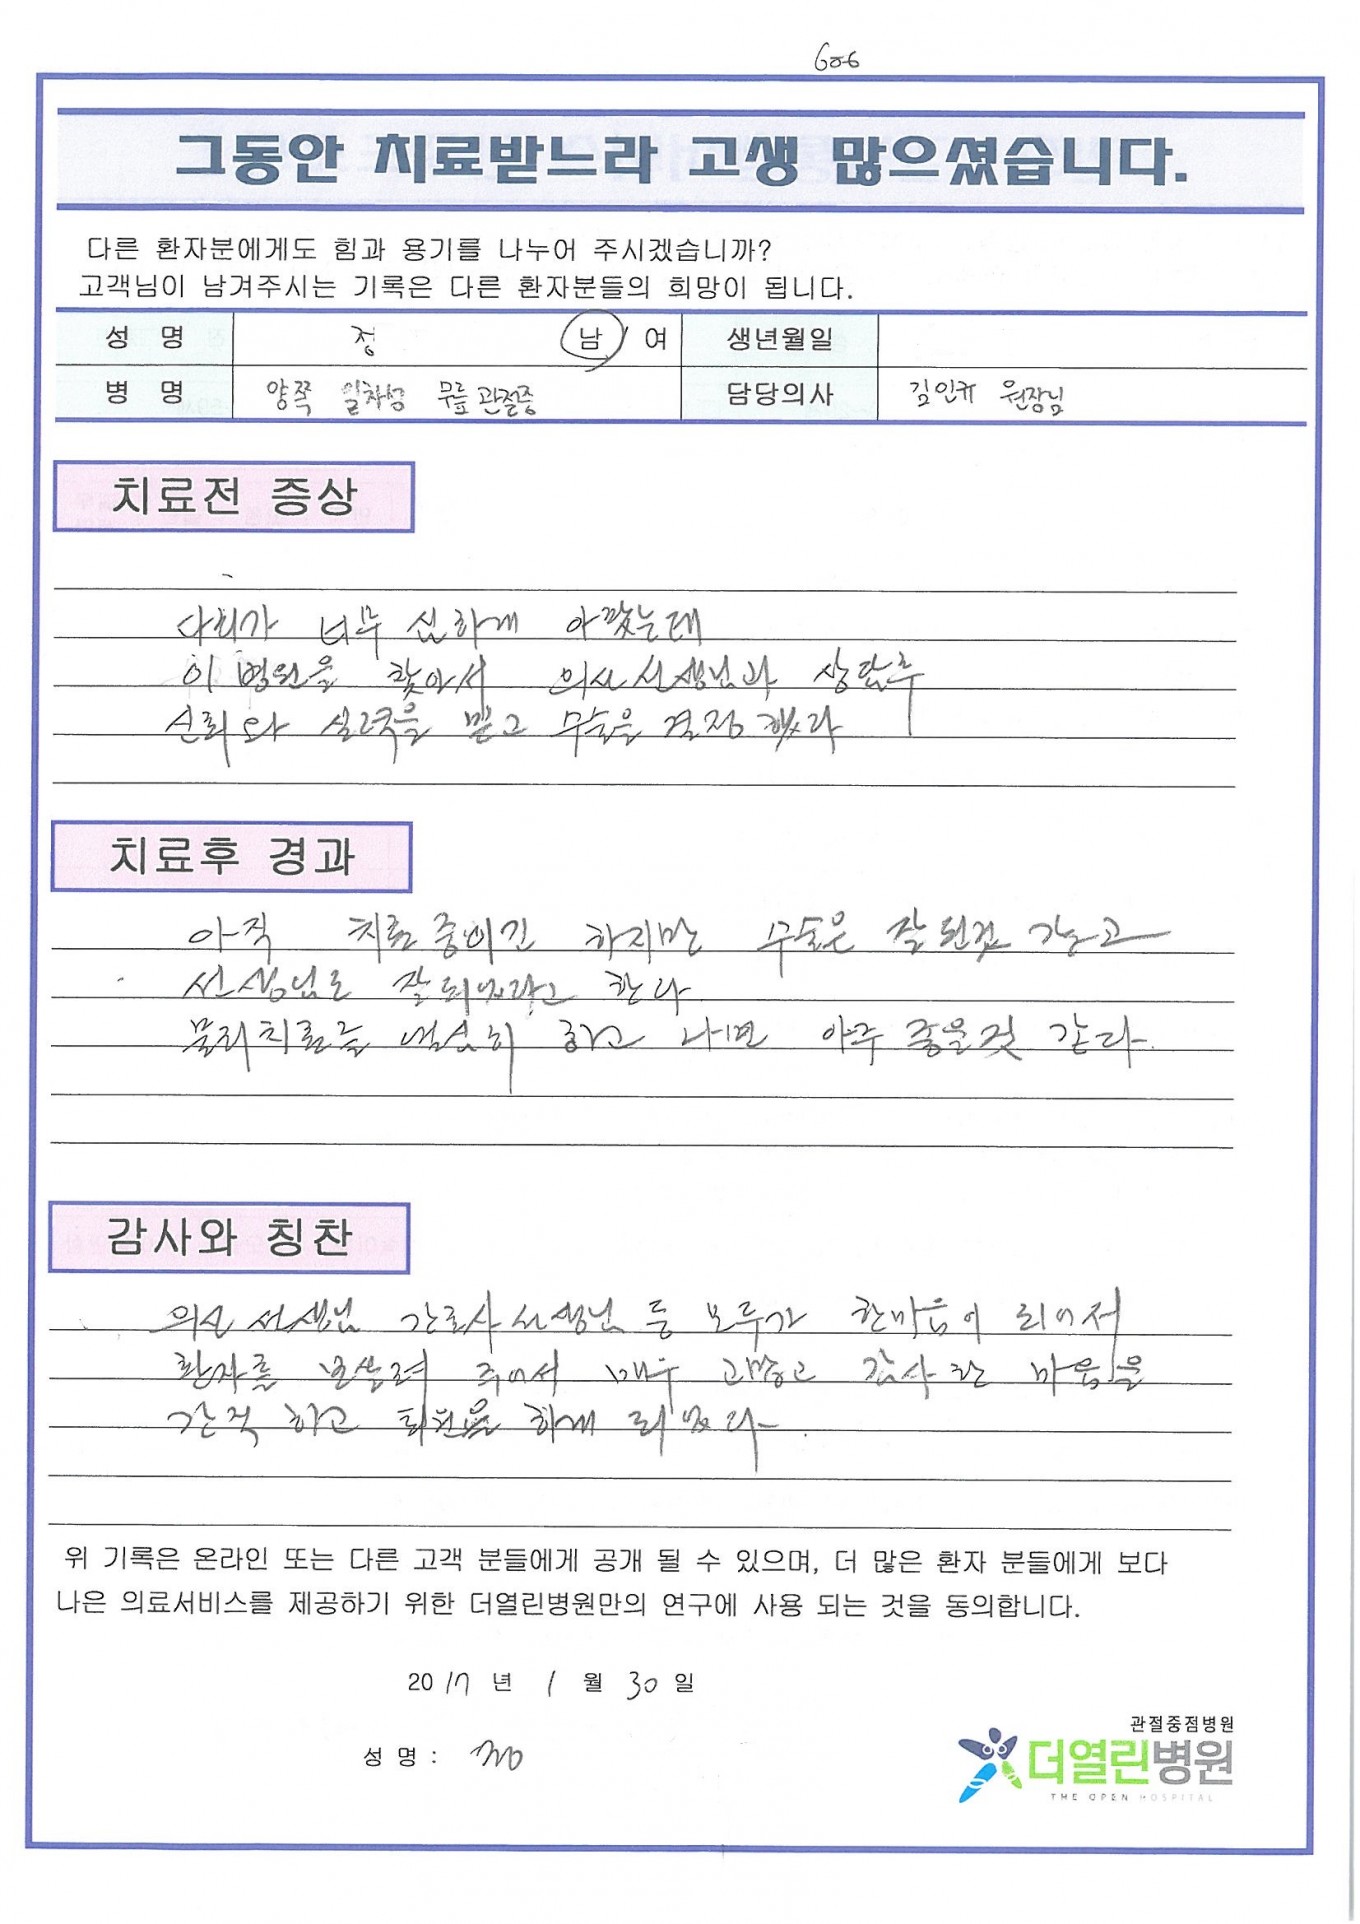 606
그동안 치료받느라 고생 많으셨습니다.
다른 환자분에게도 힘과 용기를 나누어 주시겠습니까?
고객님이 남겨주시는 기록은 다른 환자분들의 희망이 됩니다.
성 명 정 남 / 여 생년월일
병 명 양쪽 일차성 무릎관절증 담당의사 김인규 원장님
치료전 증상
다리가 너무 심하게 아팠는데
이 병원을 찾아서 의사선생님과 상담후
신뢰와 실력을 믿고 수술을 결정했다
치료후 경과
아직 치료중이긴 하지만 수술은 잘된것 같고
선생님도 잘되었다고 한다
물리치료를 열심히 하고 나면 아주 좋을것 같다.
감사와 칭찬
의사선생님 간호사선생님 등 모두가 한마음이 되어서
환자를 보살펴 주어서 매우 고맙고 감사한 마음을
간직하고 퇴원을 하게 되었다.
위 기록은 온라인 또는 다른 고객 분들에게 공개 될 수 있으며, 더 많은 환자 분들에게 보다
나은 의료서비스를 제공하기 위한 더열린병원만의 연구에 사용 되는 것을 동의합니다.
2017 년 1 월 30 일
성 명 : 정
관절중점병원
더열린병원
THE OPEN HOSPITAL